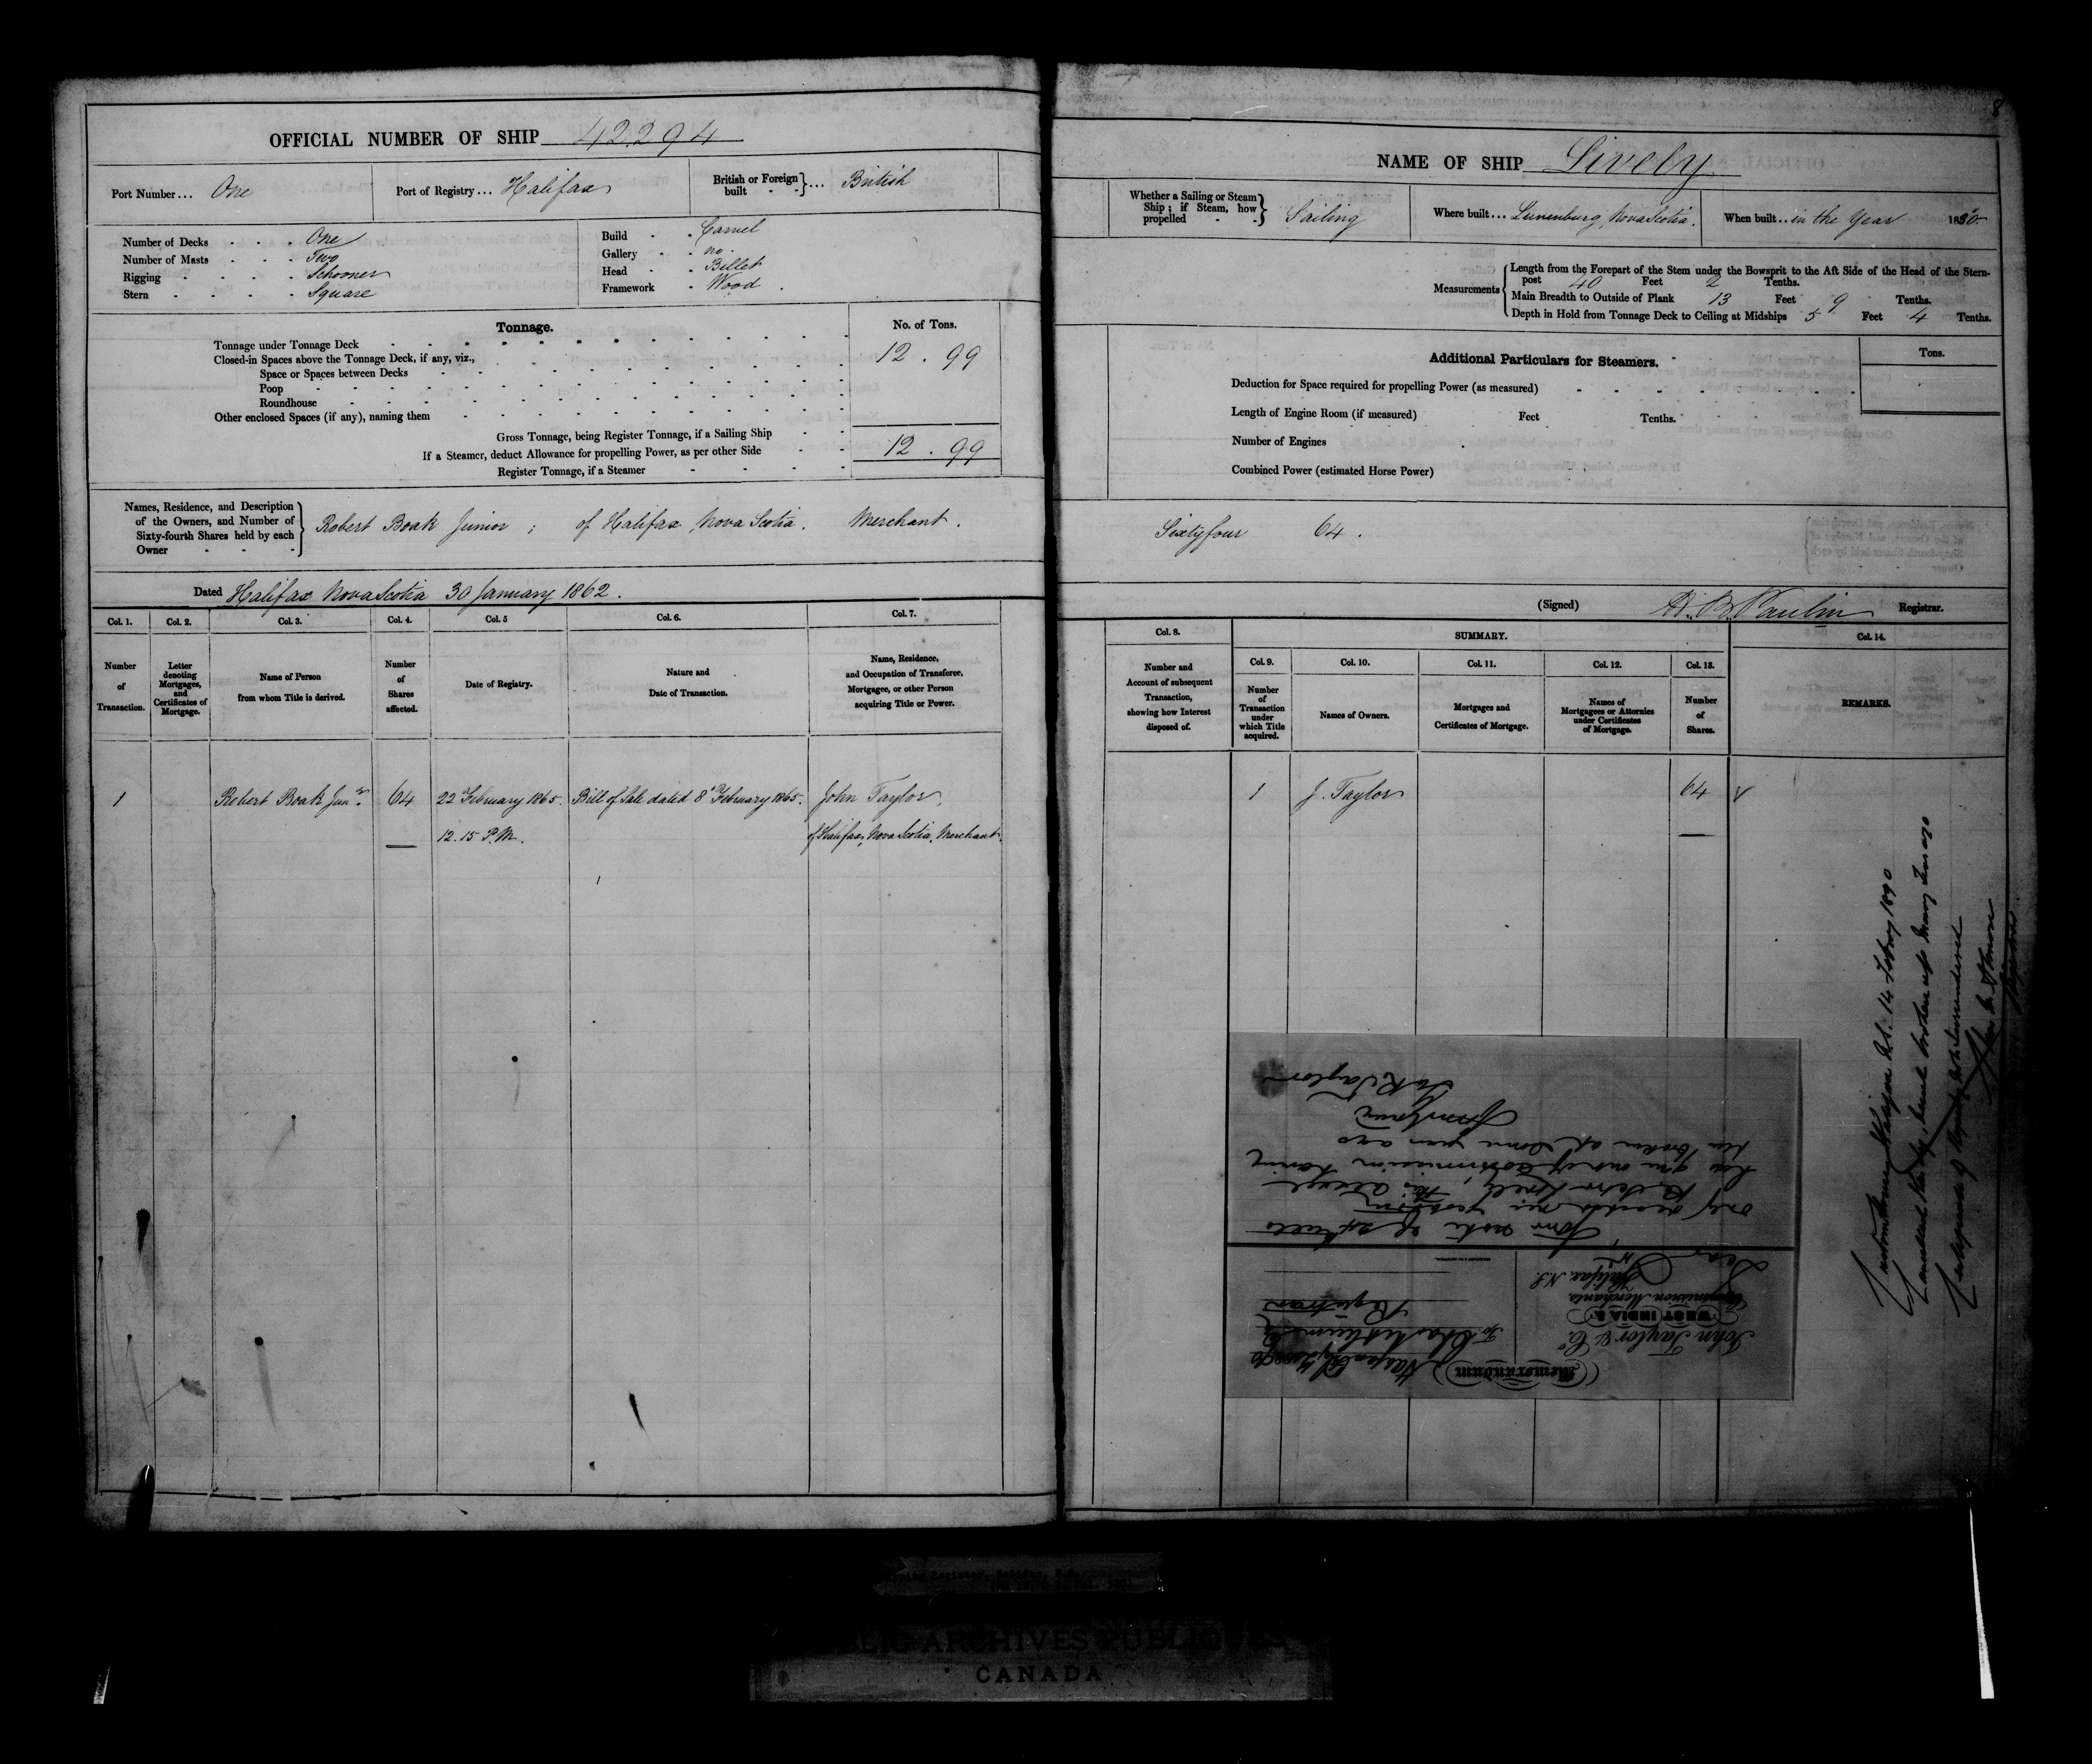 OFFICIAL NUMBER OF SHIP 42294
Port Number... One
Port of Registry... Halifax
British or Foreign built } ... British
Number of Decks - - - One
Number of Masts - - - Two
Rigging - - - - Schooner
Stern - - - - Square
Build - - Carvel
Gallery - - no.
Head - - Billet
Framework - Wood.
Tonnage.
No. of Tons.
Tonnage under Tonnage Deck 12.99
Closed-in Spaces above the Tonnage Deck, if any, viz.,
Space or Spaces between Decks
Poop
Roundhouse
Other enclosed Spaces (if any), naming them
Gross Tonnage, being Register Tonnage, if a Sailing Ship 12.99
If a Steamer, deduct Allowance for propelling Power, as per other Side
Register Tonnage, if a Steamer
Names, Residence, and Description
of the Owners, and Number of
Sixty-fourth Shares held by each
Owner
Robert Boak Junior ; of Halifax Nova Scotia. Merchant.
Dated Halifax Nova Scotia 30 January 1862.
Col. 1. Col. 2. Col. 3. Col. 4. Col. 5 Col. 6. Col. 7.
Number of Transaction.
Letter denoting Mortgages, and Certificates of Mortgage.
Name of Person from whom Title is derived.
Number of Shares affected.
Date of Registry.
Nature and Date of Transaction.
Name, Residence, and Occupation of Transferee, Mortgagee, or other Person acquiring Title or Power.
1 Robert Boak Junr. 64 22 February 1865. Bill of Sale dated 8 February 1865. John Taylor,
12.15 P.M. of Halifax, Nova Scotia, Merchant.
8
NAME OF SHIP Lively
Whether a Sailing or Steam Ship; if Steam, how propelled } Sailing
Where built... Lunenburg, Nova Scotia.
When built.. in the Year 1850
Measurements
Length from the Forepart of the Stem under the Bowsprit to the Aft Side of the Head of the Stern-
post 40 Feet 2 Tenths.
Main Breadth to Outside of Plank 13 Feet 9 Tenths.
Depth in Hold from Tonnage Deck to Ceiling at Midships 5 Feet 4 Tenths.
Additional Particulars for Steamers.
Tons.
Deduction for Space required for propelling Power (as measured)
Length of Engine Room (if measured) Feet Tenths.
Number of Engines
Combined Power (estimated Horse Power)
Sixty four 64.
(Signed) Registrar.
Col. 8. SUMMARY. Col. 14.
Col. 9. Col. 10. Col. 11. Col. 12. Col. 13.
Number and Account of subsequent Transaction, showing how Interest disposed of.
Number of Transaction under which Title acquired.
Names of Owners.
Mortgages and Certificates of Mortgage.
Names of Mortgagees or Attornies under Certificates of Mortgage.
Number of Shares.
REMARKS.
1 J. Taylor 64
14 1890
broken up many years ago
Certificate of Registry not surrendered
Memorandum
John Taylor & Co.
WEST INDIA &
Commission Merchants,
Halifax, N.S.
To
Registrar
Dear Sir
Your note of
only
has gone out of commission having
been broken up some years ago
Yours truly
Taylor
Halifax, N.S.
PUBLIC ARCHIVES PUBLIQUES
CANADA